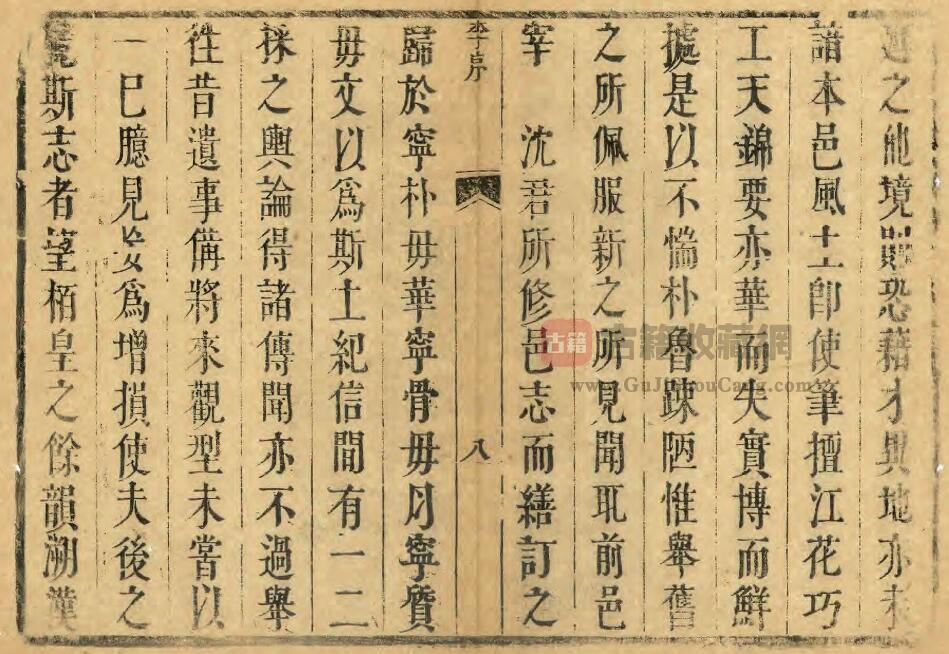 之他境則恐藉才異地亦未
諳本邑風土卽使筆擅江花巧
工天錦要亦華而失實博而鮮
據是以不惴朴魯踈陋惟舉舊
之所佩服新之所見聞耴前邑
宰 沈君所修邑志而繕訂之
李序 八
歸於寧朴毋華寧骨毋肉寧質
毋文以爲斯土紀信間有一二
採之輿論得諸傳聞亦不過舉
徃昔遺事備將來觀型未甞以
一巳臆見妄爲增損使夫後之
覽斯志者望栢皇之餘韻溯漢
古籍 古籍收藏網
www.GuJiShouCang.com